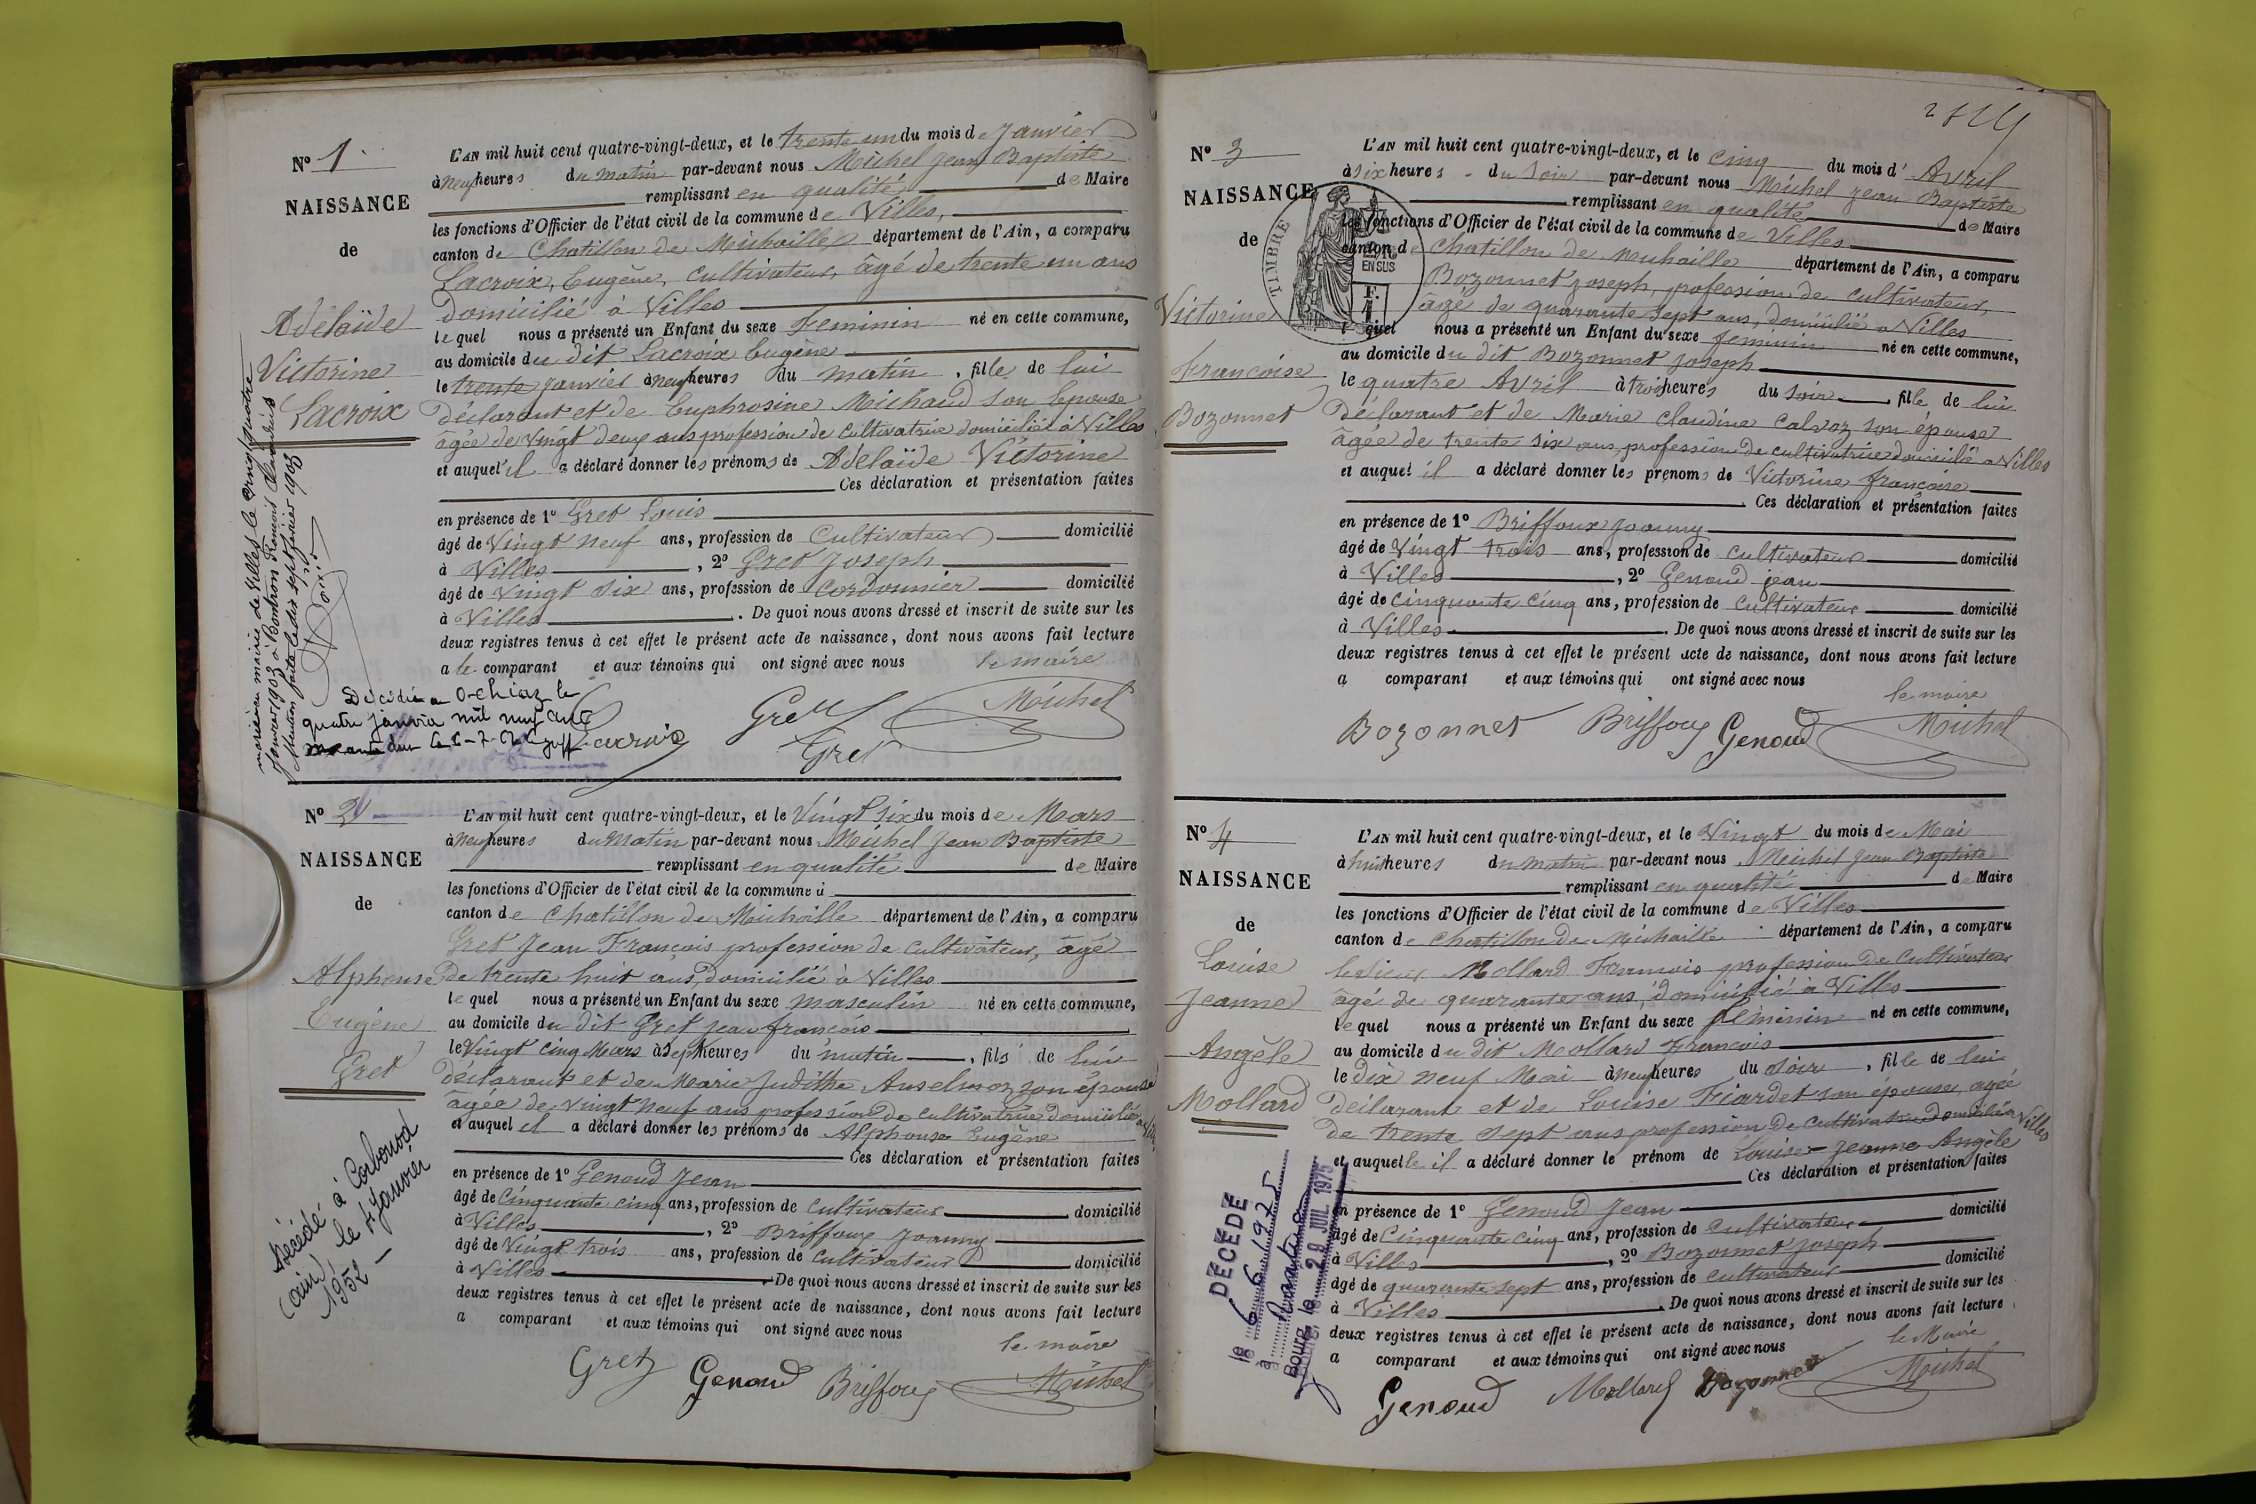 N° 1
NAISSANCE
de
Adélaïde
Victorine
Lacroix
L'AN mil huit cent quatre-vingt-deux, et le trente un du mois de Janvier
à neuf heures du matin par-devant nous Michel Jean Baptiste
remplissant en qualité de Maire
les fonctions d'Officier de l'état civil de la commune de Villes,
canton de Chatillon de Michaille département de l'Ain, a comparu
Lacroix, Eugène, cultivateur, âgé de trente un ans
domicilié à Villes
lequel nous a présenté un Enfant du sexe Feminin né en cette commune,
au domicile du dit Lacroix Eugène
le trente janvier à neuf heures du matin, fille de lui
déclarant et de Euphrosine Michaud son épouse
âgée de vingt deux ans profession de cultivatrice domiciliée à Villes
et auquel il a déclaré donner les prénoms de Adelaïde Victorine
Ces déclaration et présentation faites
en présence de 1° Gret Louis
âgé de Vingt neuf ans, profession de Cultivateur domicilié
à Villes, 2° Gret Joseph
âgé de Vingt Six ans, profession de Cordonnier domicilié
à Villes. De quoi nous avons dressé et inscrit de suite sur les
deux registres tenus à cet effet le présent acte de naissance, dont nous avons fait lecture
a le comparant et aux témoins qui ont signé avec nous le maire
Lacroix Gret Gret Michel
mariée en mairie de Villes le vingt quatre
janvier 1903 à
Mention faite le dix sept février 1903
Décédée à Ochiaz le
quatre janvier mil neuf cent
N° 2
NAISSANCE
de
Alphonse
Eugène
Gret
L'AN mil huit cent quatre-vingt-deux, et le Vingt Six du mois de Mars
à neuf heures du Matin par-devant nous Michel Jean Baptiste
remplissant en qualité de Maire
les fonctions d'Officier de l'état civil de la commune d
canton de Chatillon de Michaille département de l'Ain, a comparu
Gret Jean François profession de cultivateur, âgé
de trente huit ans, domicilié à Villes
lequel nous a présenté un Enfant du sexe masculin né en cette commune,
au domicile du dit Gret Jean françois
le Vingt cinq Mars à Sept heures du matin, fils de lui
déclarant et de Marie Judithe Anselmoz son épouse
âgée de vingt neuf ans profession de cultivatrice domiciliée à Villes
et auquel il a déclaré donner les prénoms de Alphonse Eugène
Ces déclaration et présentation faites
en présence de 1° Genoud Jean
âgé de Cinquante cinq ans, profession de Cultivateur domicilié
à Villes, 2° Briffoux Joanny
âgé de Vingt trois ans, profession de cultivateur domicilié
à Villes De quoi nous avons dressé et inscrit de suite sur les
deux registres tenus à cet effet le présent acte de naissance, dont nous avons fait lecture
a comparant et aux témoins qui ont signé avec nous
le maire
Gret Genoud Briffoux Michel
Décédé à Corbonod
(Ain) le 4 Janvier
1952
N° 3
NAISSANCE
de
Victorine
Françoise
Bozonnet
TIMBRE
EN SUS
L'AN mil huit cent quatre-vingt-deux, et le cinq du mois d'Avril
à six heures du Soir par-devant nous Michel Jean Baptiste
remplissant en qualité de Maire
les fonctions d'Officier de l'état civil de la commune de Villes
canton de Chatillon de Michaille département de l'Ain, a comparu
Bozonnet Joseph, profession de cultivateur,
âgé de quarante sept ans, domicilié à Villes
lequel nous a présenté un Enfant du sexe feminin né en cette commune,
au domicile du dit Bozonnet Joseph
le quatre Avril à trois heures du soir, fille de lui
déclarant et de Marie Claudine Calvoz son épouse
âgée de trente six ans, profession de cultivatrice domicilié à Villes
et auquel il a déclaré donner les prénoms de Victorine françoise
Ces déclaration et présentation faites
en présence de 1° Briffoux Joanny
âgé de Vingt trois ans, profession de cultivateur domicilié
à Villes, 2° Genoud jean
âgé de Cinquante Cinq ans, profession de cultivateur domicilié
à Villes. De quoi nous avons dressé et inscrit de suite sur les
deux registres tenus à cet effet le présent acte de naissance, dont nous avons fait lecture
a comparant et aux témoins qui ont signé avec nous
le maire
Bozonnet Briffoux Genoud Michel
N° 4
NAISSANCE
de
Louise
Jeanne
Angèle
Mollard
L'AN mil huit cent quatre-vingt-deux, et le Vingt du mois de Mai
à huit heures du matin par-devant nous Michel Jean Baptiste
remplissant en qualité de Maire
les fonctions d'Officier de l'état civil de la commune de Villes
canton de Chatillon de Michaille département de l'Ain, a comparu
le Sieur Mollard François profession de Cultivateur
âgé de quarante ans, domicilié à Villes
lequel nous a présenté un Enfant du sexe féminin né en cette commune,
au domicile du dit Mollard François
le dix neuf Mai à neuf heures du soir, fille de lui
déclarant et de Louise Fiardet son épouse, agée
de trente sept ans profession de cultivatrice domiciliée à Villes
et auquel il a déclaré donner le prénom de Louise Jeanne Angèle
Ces déclaration et présentation faites
en présence de 1° Genoud Jean
âgé de Cinquante Cinq ans, profession de cultivateur domicilié
à Villes, 2° Bozonnet Joseph
âgé de quarante sept ans, profession de cultivateur domicilié
à Villes. De quoi nous avons dressé et inscrit de suite sur les
deux registres tenus à cet effet le présent acte de naissance, dont nous avons fait lecture
a comparant et aux témoins qui ont signé avec nous
le Maire
Genoud Mollard Bozonnet Michel
DÉCÉDÉ
le 6 6 1975
à Nantua
Bourg, le 29 JUIL. 1975